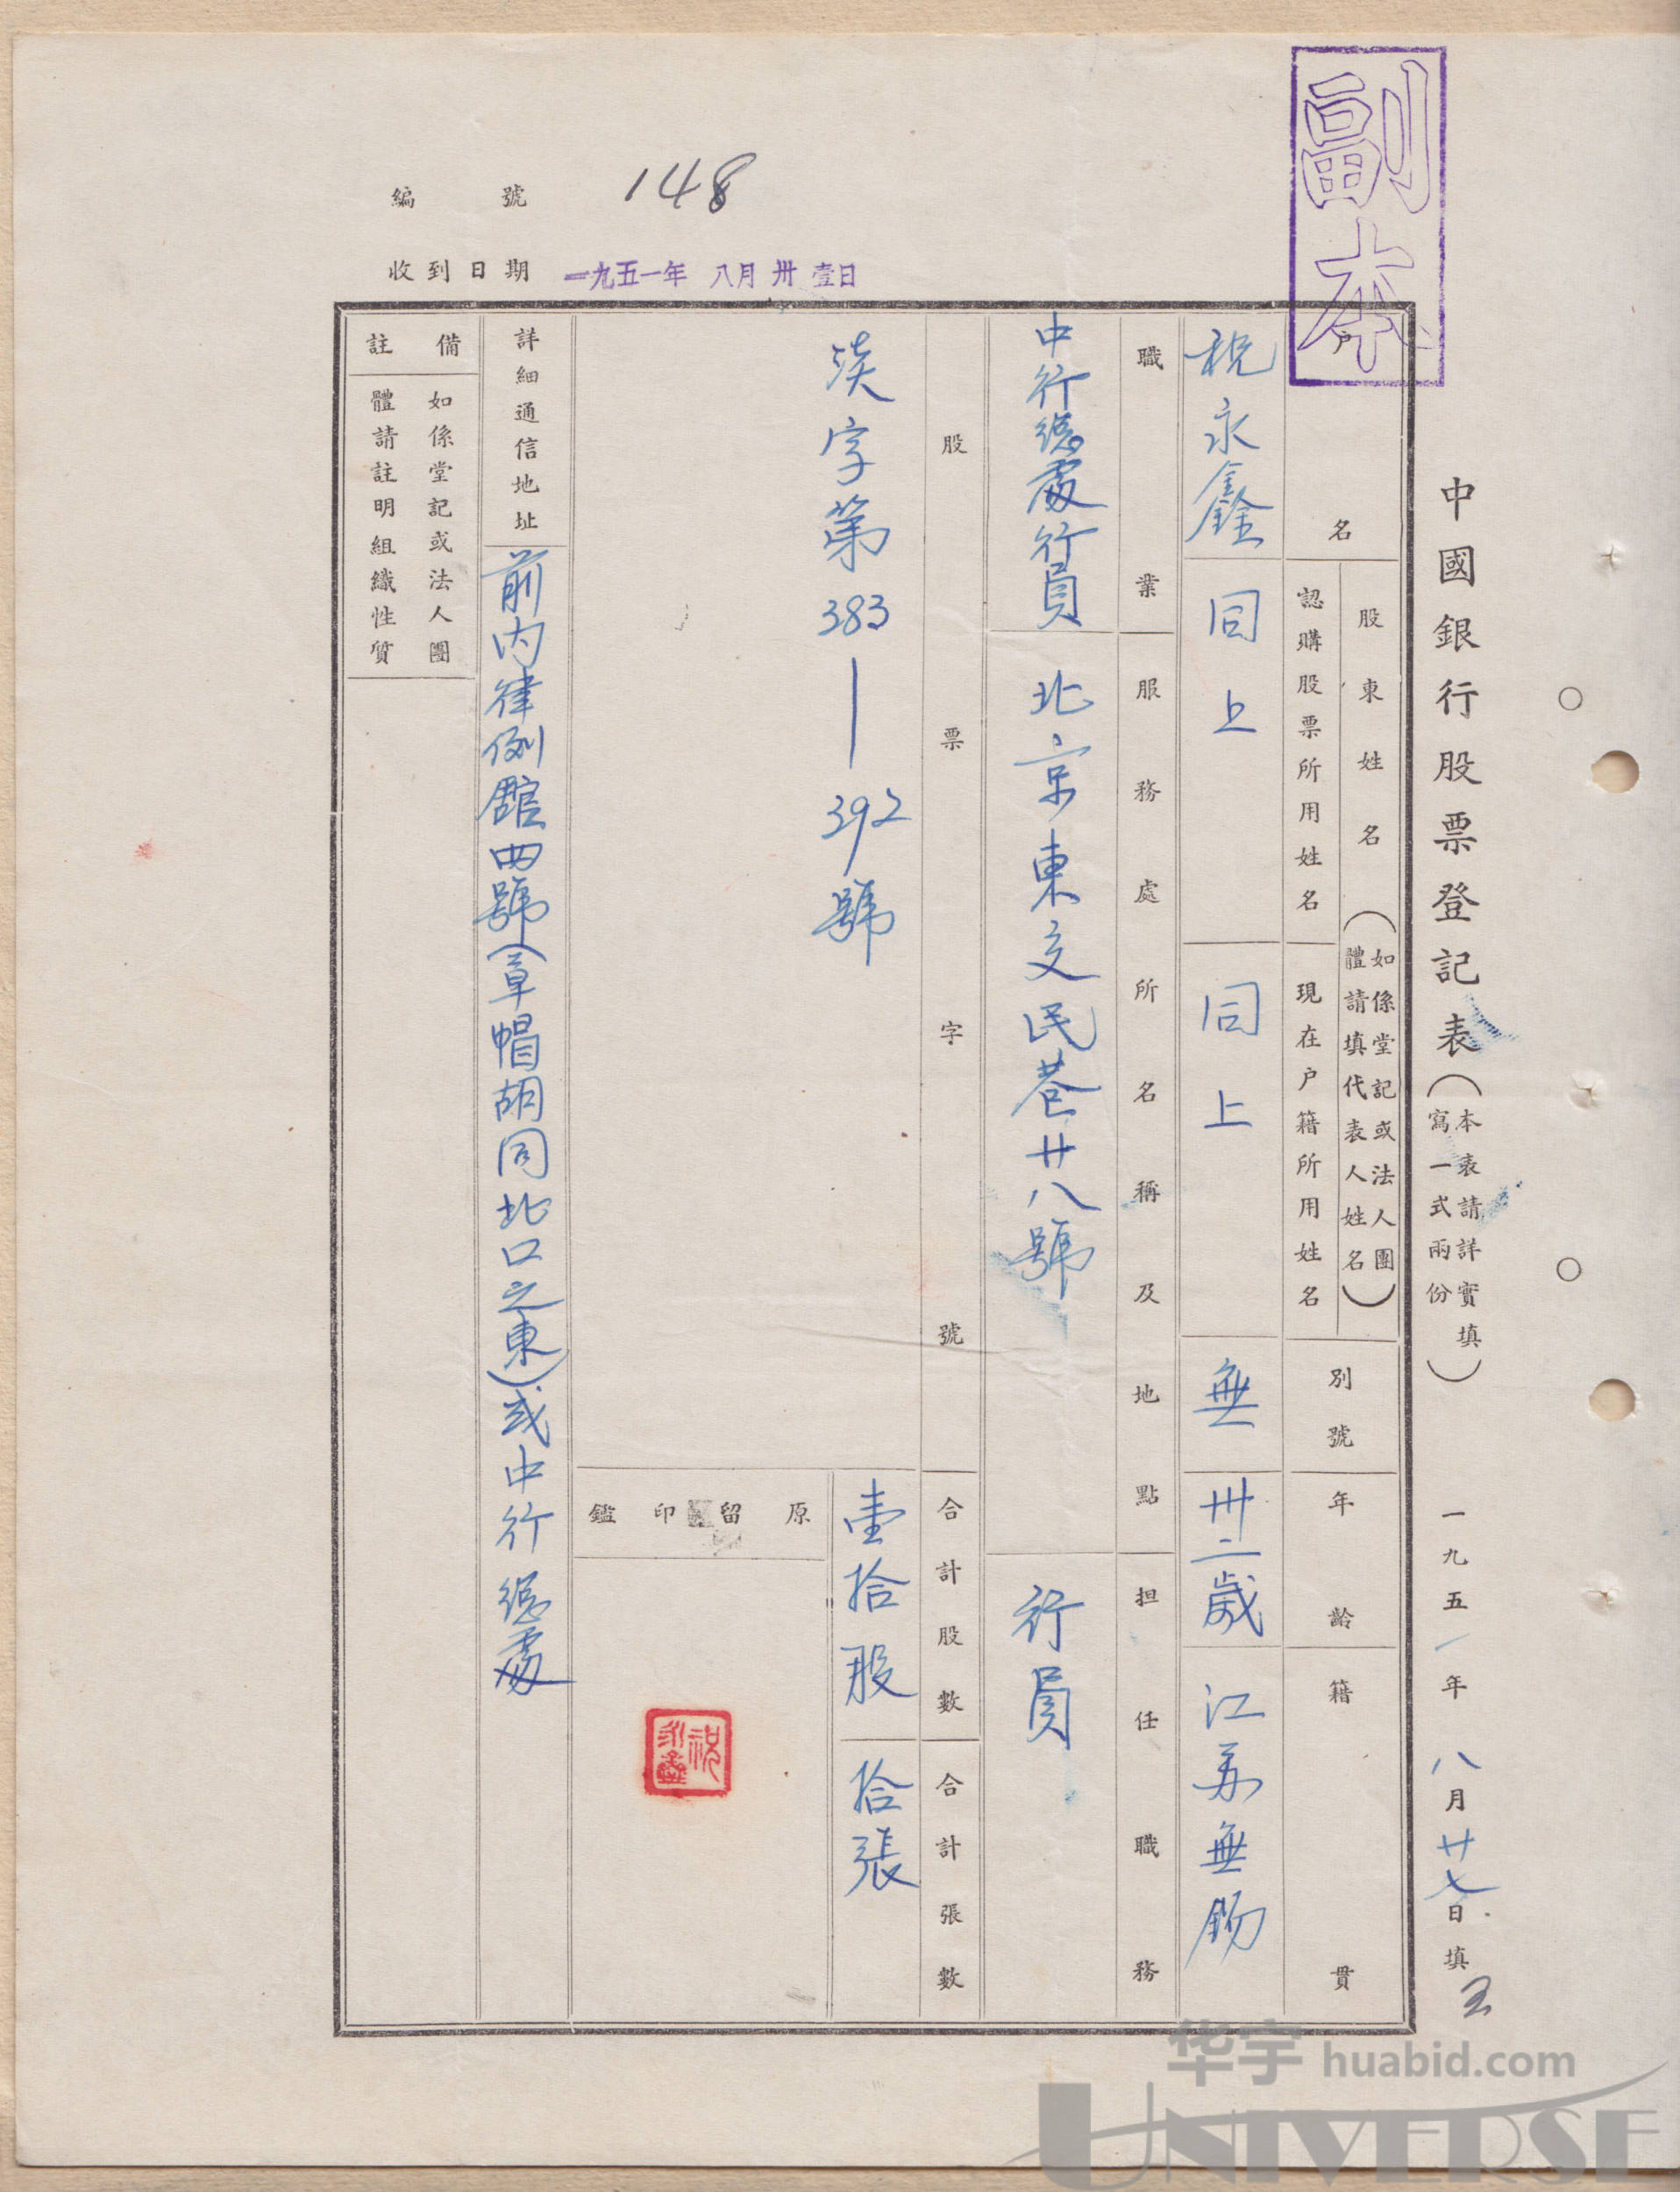 副本
編號 148
收到日期 一九五一年 八月 卅 壹日
中國銀行股票登記表（本表請詳實填寫一式兩份）
一九五一年八月廿七日填
戶名
祝永鑫
股東姓名（如係堂記或法人團體請填代表人姓名）
認購股票所用姓名
同上
現在戶籍所用姓名
同上
別號
無
年齡
卅二歲
籍貫
江蘇無錫
職業
中行總處行員
服務處所名稱及地點
北京東交民巷廿八號
担任職務
行員
股票字號
淡字第383—392號
合計股數
壹拾股
合計張數
拾張
原留印鑑
祝永鑫
詳細通信地址
前內律例館四號（章帽胡同北口之東）或中行總處
備註
如係堂記或法人團體請註明組織性質
华宇 huabid.com
UNIVERSE